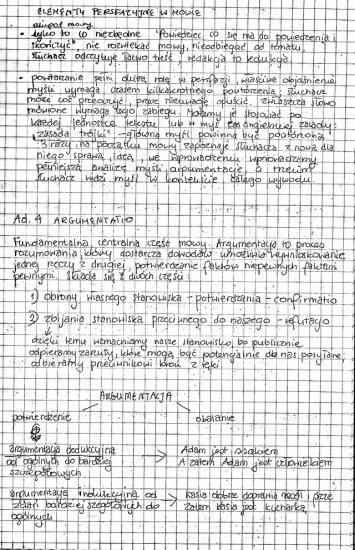 ELEMENTY PERSWAZYJNE W MOWIE
umiar mowy
• tylko to co niezbędne "Powiedzieć co się ma do powiedzenia i
skończyć" nie rozwlekać mowy, nie odbiegać od tematu,
słuchacz odczytuje łatwo treść, redakcja to redukcja.
• powtarzanie pełni dużą rolę w perswazji, właściwe objaśnienie
myśli wymaga czasem kilkakrotnego powtórzenia, słuchacz
może coś przeoczyć, przez nieuwagę opuścić, zwłaszcza słowo
mówione wymaga tego zabiegu. Możemy je stosować po
każdej jednostce tekstu lub w myśl zasady
"zasada trójki" - główna myśl powinna być powtórzona
3 razy, na początku mowy zapoznaje słuchacza z nową dla
niego sprawą, ideą, we wprowadzeniu wprowadzamy
pełniejszą analizę myśli argumentację, a trzecim
słuchacz widzi myśl w kontekście całego wywodu.
Ad. 4 ARGUMENTATIO
Fundamentalna, centralna część mowy. Argumentacja to proces
rozumowania, który dostarcza dowodów umożliwia wywnioskowanie
jednej rzeczy z drugiej, potwierdzenie faktów niepewnych faktami
pewnymi. Składa się z dwóch części:
1) obrony własnego stanowiska - potwierdzania - confirmatio
2) zbijania stanowiska przeciwnego do naszego - refutacjo
dzięki temu wzmacniamy nasze stanowisko, bo publicznie
odpieramy zarzuty, które mogą być potencjalnie dla nas
odbieramy przeciwnikowi broń z ręki.
ARGUMENTACJA
potwierdzenie obalanie
argumentacja dedukcyjna
od ogólnych do bardziej
szczegółowych
Adam jest ssakiem
A zatem Adam jest człowiekiem
argumentacja indukcyjna od
zdań bardziej szczegółowych do
ogólnych
Kasia dobrze doprawia
Zatem Kasia jest kucharką